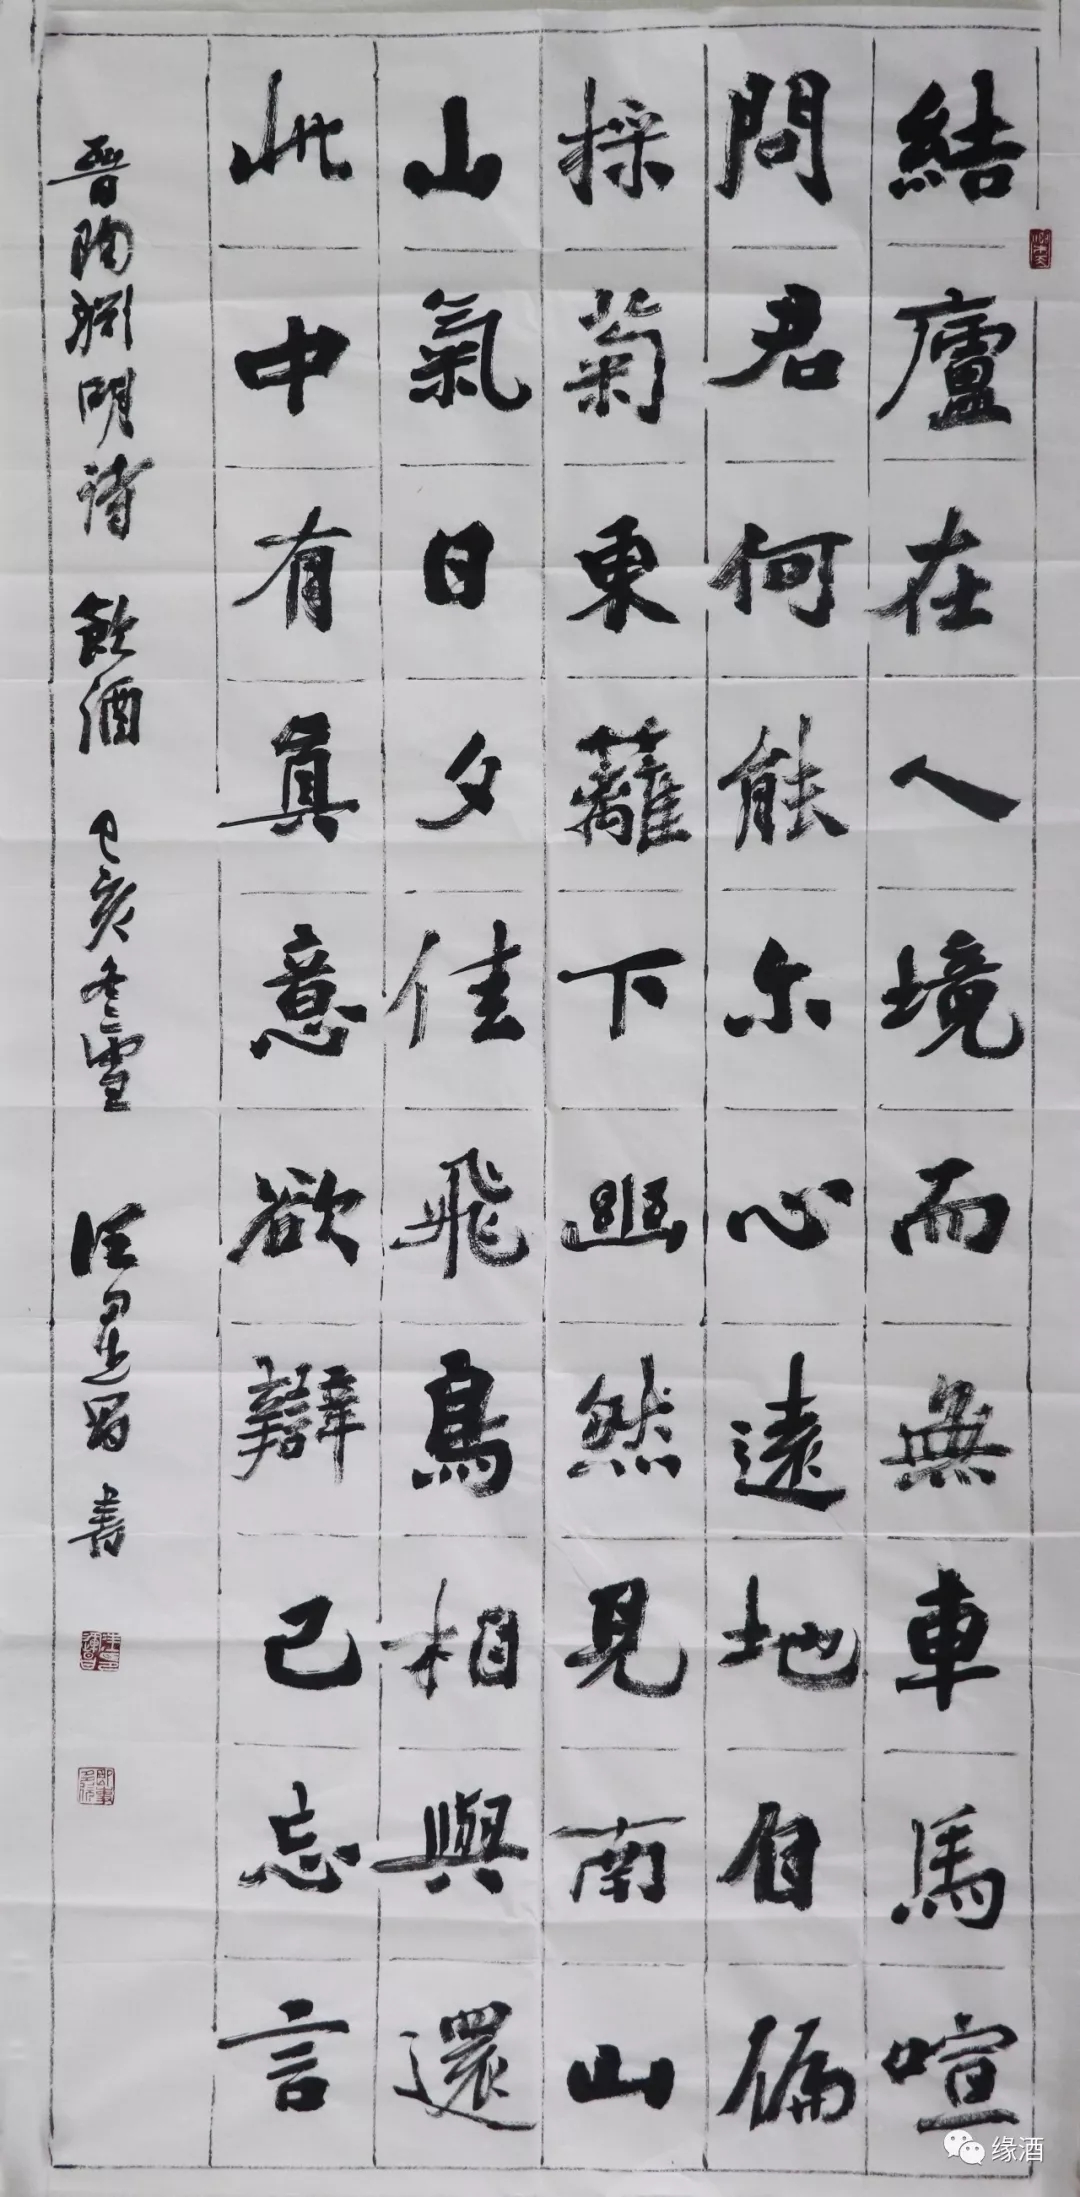 結廬在人境而無車馬喧
問君何能尔心遠地自偏
採菊東蘺下幽然見南山
山氣日夕佳飛鳥相與還
此中有真意欲辯已忘言
晋陶渊明诗 飲酒 己亥冬雪 书
缘酒